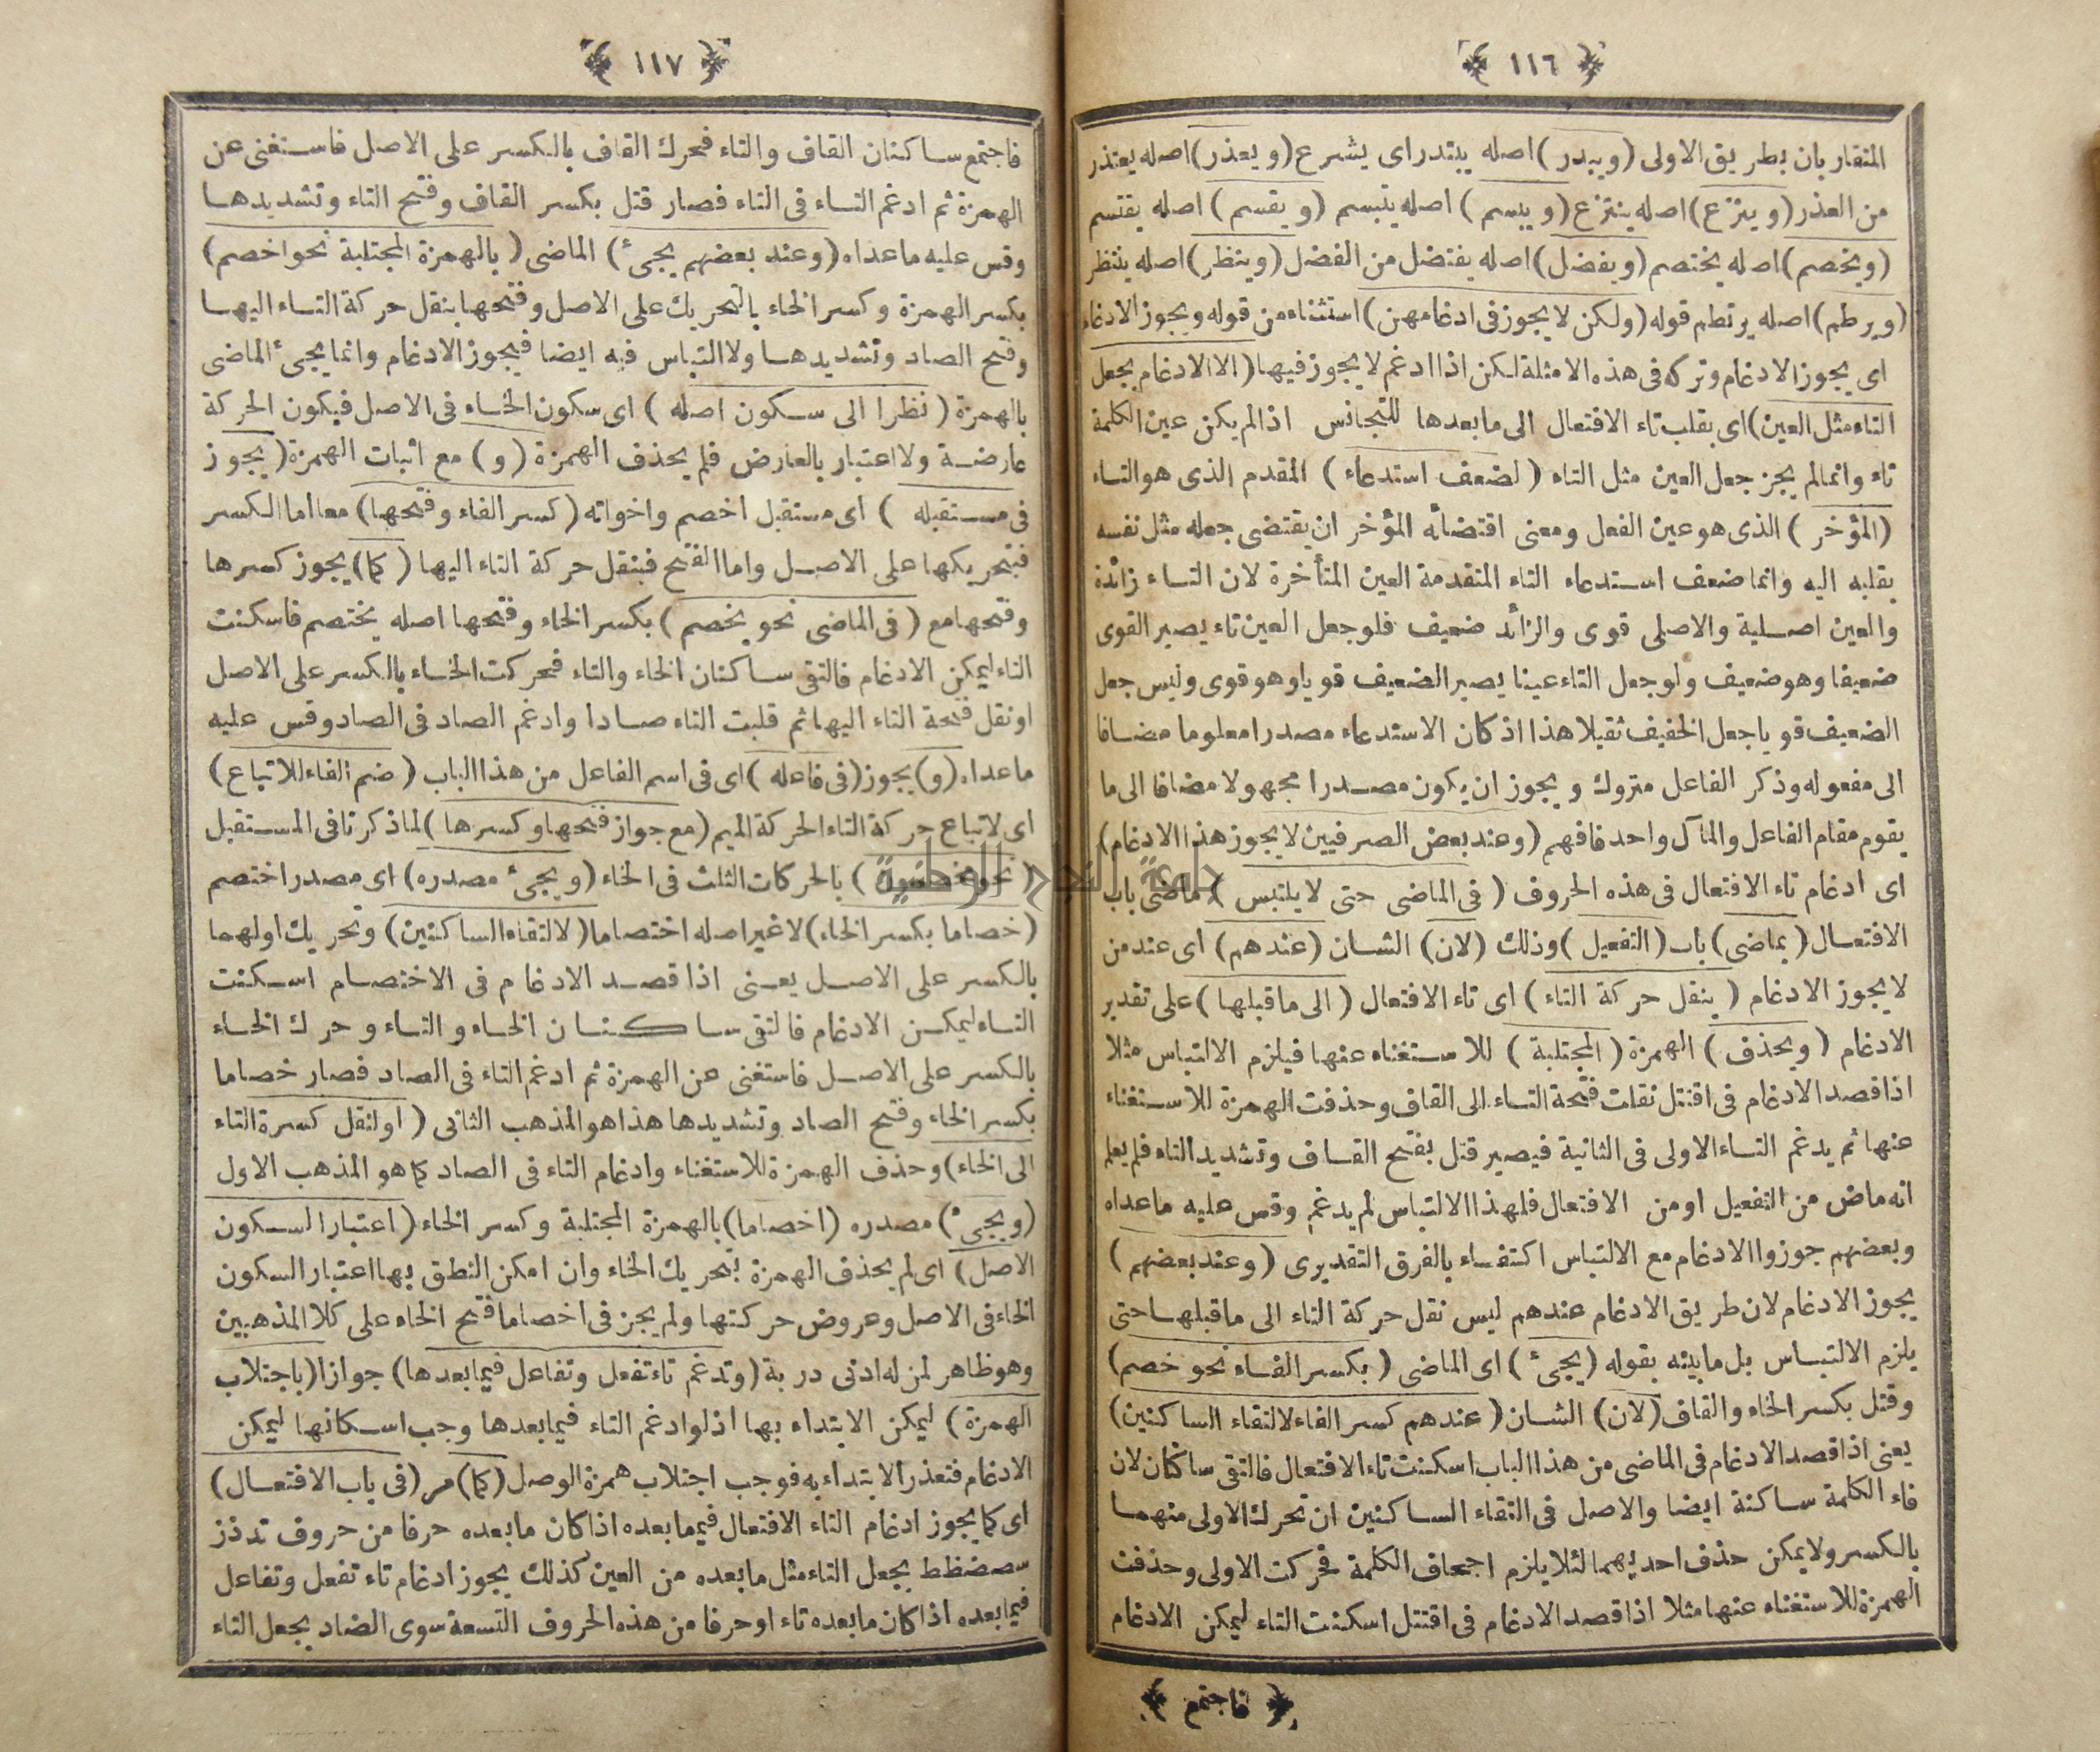 ﴿ ١١٦ ﴾
المتقاربان بطريق الاولى (ويبدر) اصله يبتدر اى يشرع (ويعذر) اصله يعتذر
من العذر (وينزع) اصله ينتزع (ويبسم) اصله يبتسم (ويقسم) اصله يقتسم
(ويخصم) اصله يختصم (ويفضل) اصله يفتضل من الفضل (وينظر) اصله ينتظر
(ويرطم) اصله يرتطم قوله (ولكن لا يجوز فى ادغامهن) استثناء من قوله ويجوز الادغام
اى يجوز الادغام وتركه فى هذه الامثلة لكن اذا ادغم لا يجوز فيها (الا الادغام بجعل
التاء مثل العين) اى بقلب تاء الافتعال الى ما بعدها للتجانس اذا لم يكن عين الكلمة
تاء وانما لم يجز جعل العين مثل التاء (لضعف استدعاء) المقدم الذى هو التاء
(المؤخر) الذى هو عين الفعل ومعنى اقتضائه المؤخر ان يقتضى جعله مثل نفسه
بقلبه اليه وانما ضعف استدعاء التاء المتقدمة العين المتأخرة لان التاء زائدة
والعين اصلية والاصلى قوى والزائد ضعيف فلو جعل العين تاء يصير القوى
ضعيفا وهو ضعيف ولو جعل التاء عينا يصير الضعيف قويا وهو قوى وليس جعل
الضعيف قويا جعل الخفيف ثقيلا هذا اذ كان الاستدعاء مصدرا معلوما مضافا
الى مفعوله وذكر الفاعل متروك ويجوز ان يكون مصدرا مجهولا مضافا الى ما
يقوم مقام الفاعل والمآل واحد فافهم (وعند بعض الصرفيين لا يجوز هذا الادغام)
اى ادغام تاء الافتعال فى هذه الحروف (فى الماضى حتى لا يلتبس) ماضى باب
الافتعال (بماضى) باب (التفعيل) وذلك (لان) الشان (عندهم) اى عند من
لا يجوز الادغام (ينقل حركة التاء) اى تاء الافتعال (الى ما قبلها) على تقدير
الادغام (ويحذف) الهمزة (المجتلبة) للاستغناء عنها فيلزم الالتباس مثلا
اذا قصد الادغام فى اقتتل نقلت فتحة التاء الى القاف وحذفت الهمزة للاستغناء
عنها ثم يدغم التاء الاولى فى الثانية فيصير قتل بفتح القاف وتشديد التاء فلم يعلم
انه ماض من التفعيل او من الافتعال فلهذا الالتباس لم يدغم وقس عليه ما عداه
وبعضهم جوزوا الادغام مع الالتباس اكتفاء بالفرق التقديرى (وعند بعضهم)
يجوز الادغام لان طريق الادغام عندهم ليس نقل حركة التاء الى ما قبلها حتى
يلزم الالتباس بل ما بينه بقوله (يجئ) اى الماضى (بكسر الفاء نحو خصم)
وقتل بكسر الخاء والقاف (لان) الشان (عندهم كسر الفاء لالتقاء الساكنين)
يعنى اذا قصد الادغام فى الماضى من هذا الباب اسكنت تاء الافتعال فالتقى ساكنان لان
فاء الكلمة ساكنة ايضا والاصل فى التقاء الساكنين ان تحرك الاولى منهما
بالكسر ولا يمكن حذف احديهما لئلا يلزم اجحاف الكلمة فحركت الاولى وحذفت
الهمزة للاستغناء عنها مثلا اذا قصد الادغام فى اقتتل اسكنت التاء ليمكن الادغام
﴿ فاجتمع ﴾
﴿ ١١٧ ﴾
فاجتمع ساكنان القاف والتاء فحرك القاف بالكسر على الاصل فاستغنى عن
الهمزة ثم ادغم التاء فى التاء فصار قتل بكسر القاف وفتح التاء وتشديدها
وقس عليه ما عداه (وعند بعضهم يجئ) الماضى (بالهمزة المجتلبة نحو اخصم)
بكسر الهمزة وكسر الخاء بالتحريك على الاصل وفتحها بنقل حركة التاء اليها
وفتح الصاد وتشديدها ولا التباس فيه ايضا فيجوز الادغام وانما يجئ الماضى
بالهمزة (نظرا الى سكون اصله) اى سكون الخاء فى الاصل فيكون الحركة
عارضة ولا اعتبار بالعارض فلم يحذف الهمزة (و) مع اثبات الهمزة (يجوز
فى مستقبله) اى مستقبل اخصم واخواته (كسر الفاء وفتحها) معا اما الكسر
فبتحريكها على الاصل واما الفتح فبنقل حركة التاء اليها (كما) يجوز كسرها
وفتحها مع (فى الماضى نحو يخصم) بكسر الخاء وفتحها اصله يختصم فاسكنت
التاء ليمكن الادغام فالتقى ساكنان الخاء والتاء فحركت الخاء بالكسر على الاصل
او نقل فتحة التاء اليها ثم قلبت التاء صادا وادغم الصاد فى الصاد وقس عليه
ما عداه (و) يجوز (فى فاعله) اى فى اسم الفاعل من هذا الباب (ضم الفاء للاتباع)
اى لاتباع حركة التاء الحركة الميم (مع جواز فتحها وكسرها) لما ذكرنا فى المستقبل
(نحو مخصمون) بالحركات الثلث فى الخاء (ويجئ مصدره) اى مصدر اختصم
(خصاما بكسر الخاء) لا غير اصله اختصاما (لالتقاء الساكنين) وتحريك اولهما
بالكسر على الاصل يعنى اذا قصد الادغام فى الاختصام اسكنت
التاء ليمكن الادغام فالتقى ساكنان الخاء والتاء وحرك الخاء
بالكسر على الاصل فاستغنى عن الهمزة ثم ادغم التاء فى الصاد فصار خصاما
بكسر الخاء وفتح الصاد وتشديدها هذا هو المذهب الثانى (او لنقل كسرة التاء
الى الخاء) وحذف الهمزة للاستغناء وادغام التاء فى الصاد كما هو المذهب الاول
(ويجئ) مصدره (اخصاما) بالهمزة المجتلبة وكسر الخاء (اعتبارا لسكون
الاصل) اى لم يحذف الهمزة بتحريك الخاء وان امكن النطق بها اعتبار السكون
الخاء فى الاصل وعروض حركتها ولم يجز فى اخصاما فتح الخاء على كلا المذهبين
وهو ظاهر لمن له ادنى دربة (وتدغم تاء تفعل وتفاعل فيما بعدها) جوازا (باجتلاب
الهمزة) ليمكن الابتداء بها اذ لو ادغم التاء فيما بعدها وجب اسكانها ليمكن
الادغام فتعذر الابتداء به فوجب اجتلاب همزة الوصل (كما) مر (فى باب الافتعال)
اى كما يجوز ادغام التاء الافتعال فيما بعده اذا كان ما بعده حرفا من حروف تدذز
سصضظط بجعل التاء مثل ما بعده من العين كذلك يجوز ادغام تاء تفعل وتفاعل
فيما بعده اذا كان ما بعده تاء او حرفا من هذه الحروف التسعة سوى الضاد بجعل التاء
جامعة النجاح الوطنية